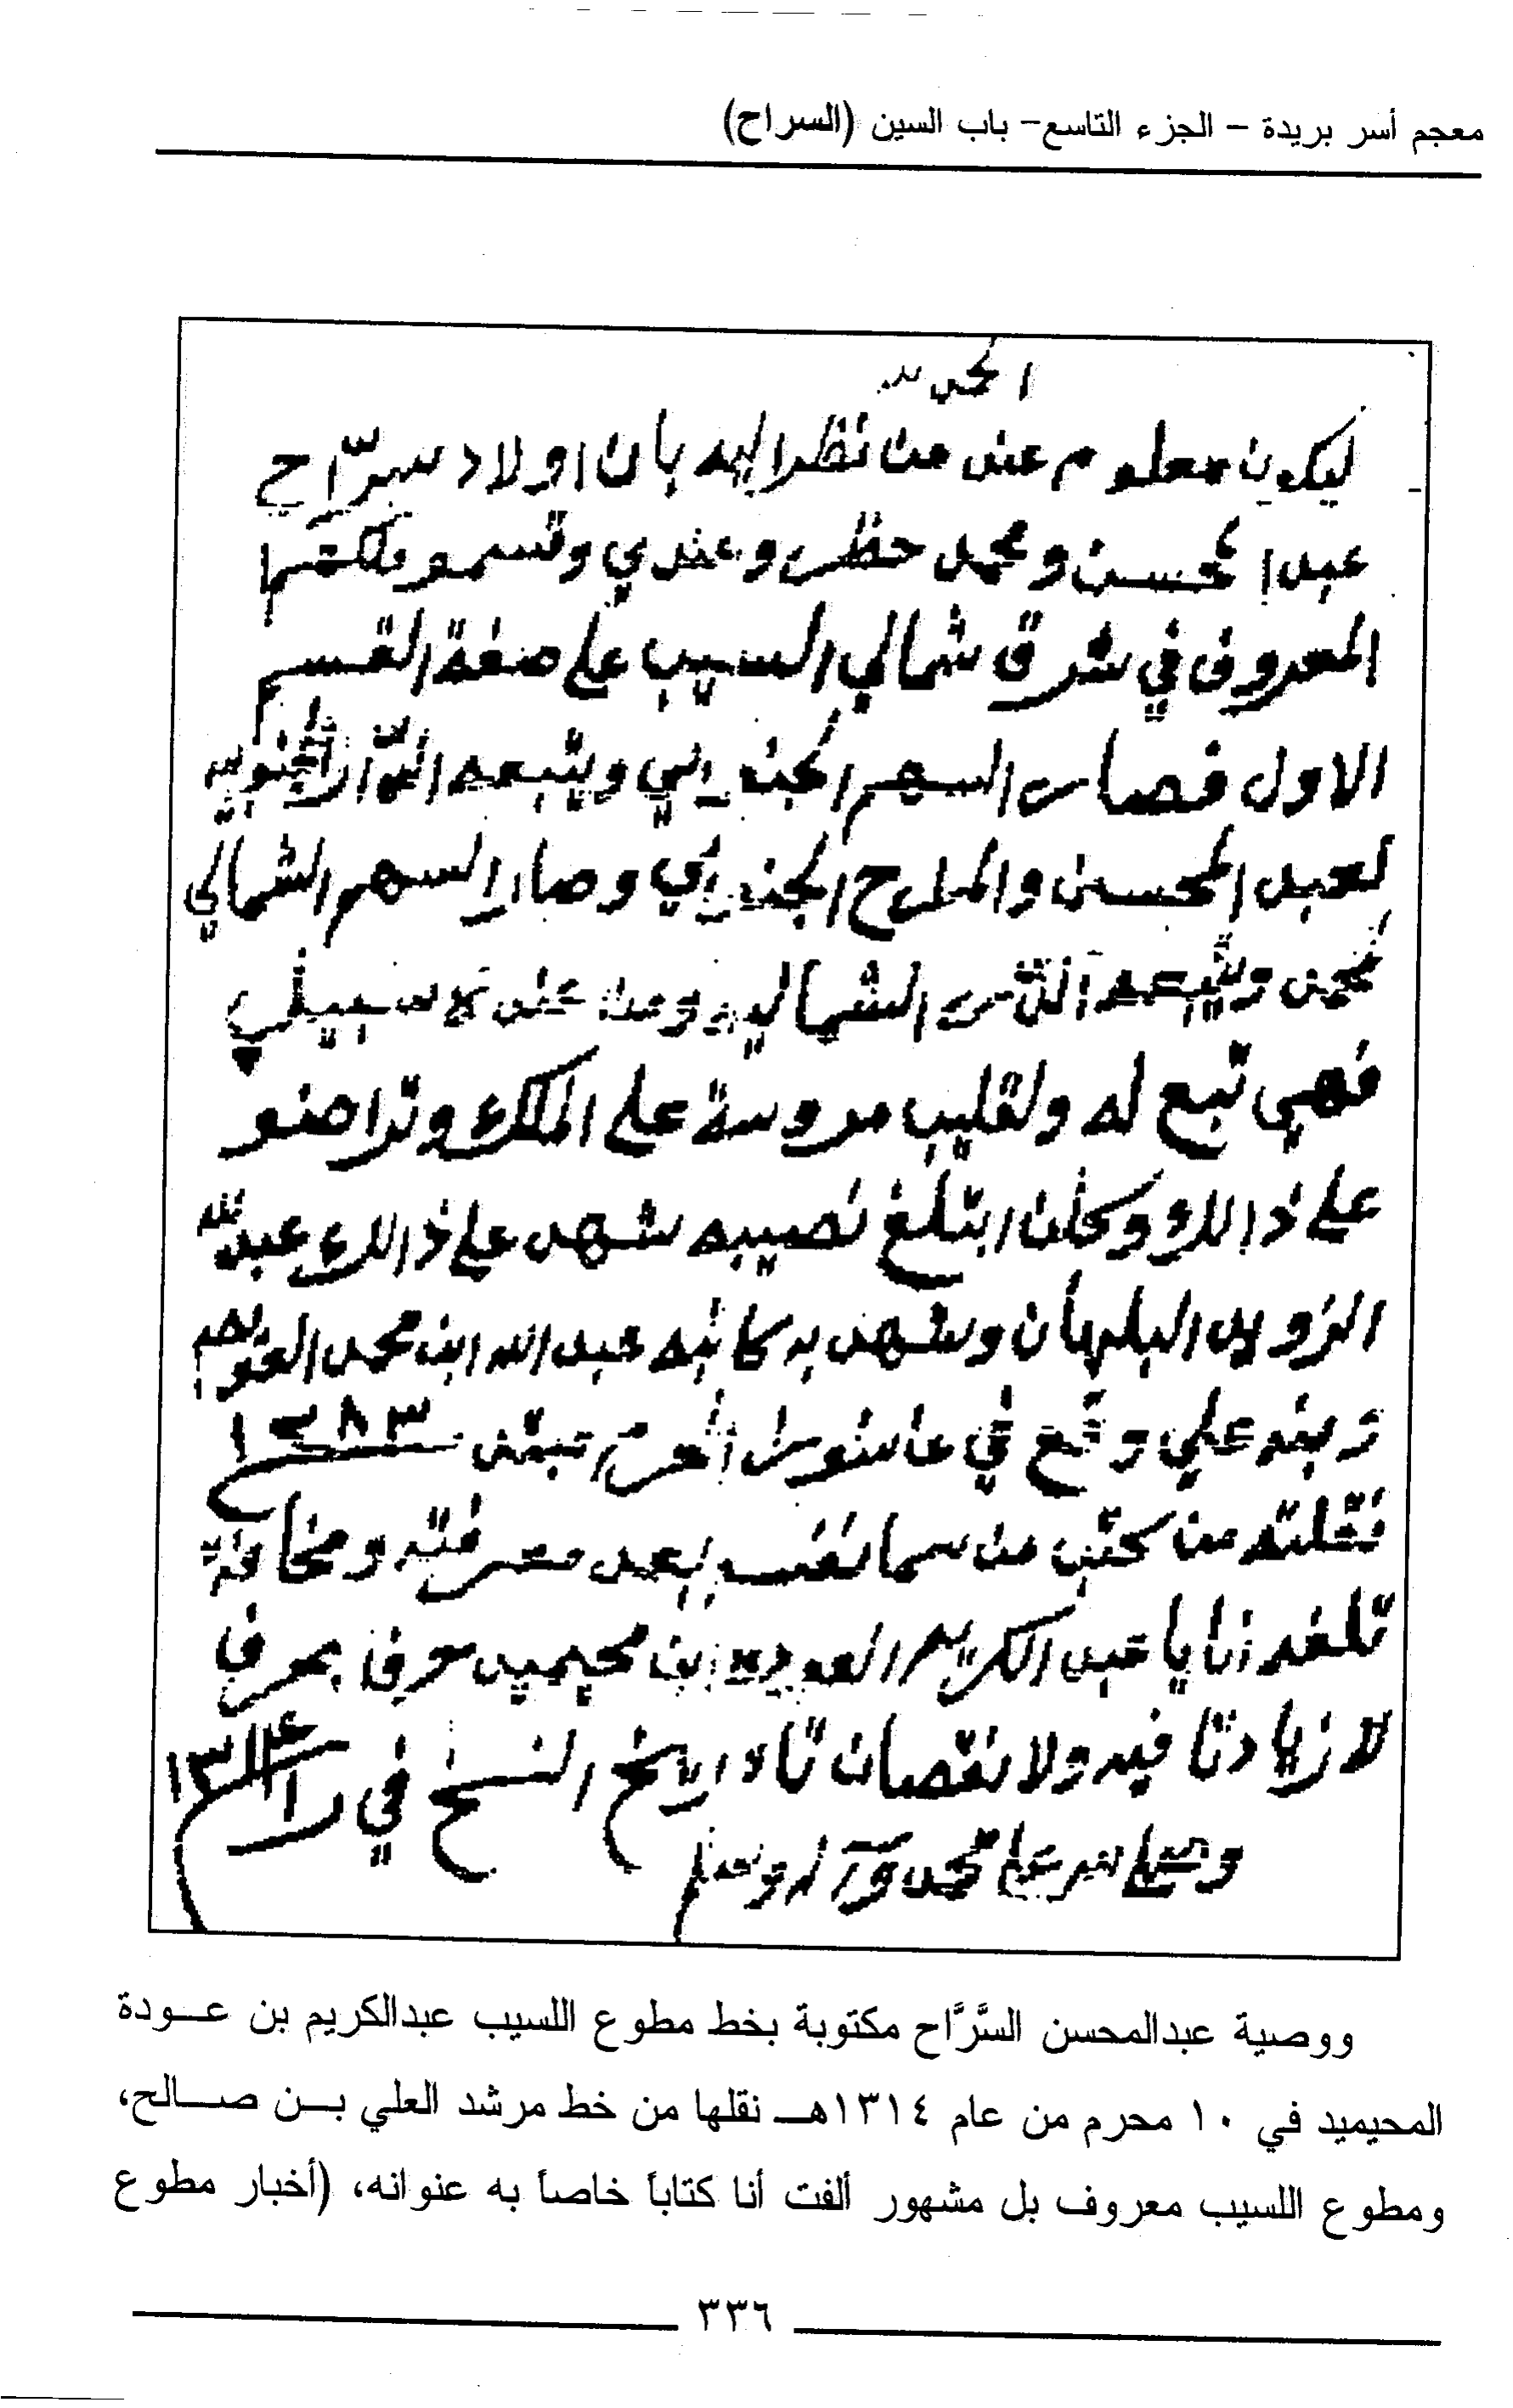 معجم أسر بريدة – الجزء التاسع– باب السين (السراح)
الحمد لله
ليكون معلوم عند من نظر اليه بان اولاد سرّاح
عبدالمحسن ومحمد حظرو عندي وقسمو ملكهم
المعروف في شرق شمالي السيب على صفة القسم
الاول فصار السهم الجنوبي ويتبعه الدار الجنوبيه
لعبد المحسن والملح الجنوبي وصار السهم الشمالي
لمحمد ويتبعه الشماليه ومن عنده سبيل
فهي تبع له ولقليب مروسة على الملك وتراضو
على ذالك وكلن ابتلغ نصيبه شهد على ذالك عبدالله
الزويد البليهان وشهد به كاتبه عبدالله ابن محمد العويصم
وبنه علي وقع في عاشور المحرم ١٢٨٣
نقلته من من بعد معرفته ومخافة
تلفه انايا عبد الكريم العوده ابن محيميد حرف بحرف
لا زيادتا فيه ولا نقصان تاريخ النسخ في ١٣١٤
وصلى الله على محمد وآله وسلم
ووصية عبدالمحسن السَّرَّاح مكتوبة بخط مطوع اللسيب عبدالكريم بن عودة
المحيميد في ١٠ محرم من عام ١٣١٤هـ نقلها من خط مرشد العلي بن صالح،
ومطوع اللسيب معروف بل مشهور ألفت أنا كتاباً خاصاً به عنوانه، (أخبار مطوع
٣٣٦